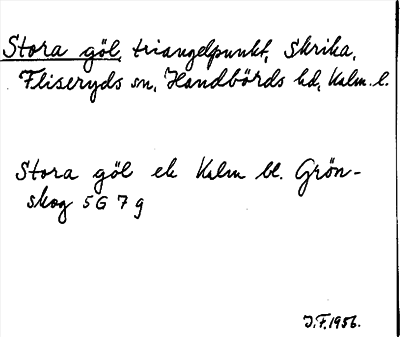 Stora göl, triangelpunkt, Skrika,
Fliseryds sn, Handbörds hd, Kalm. l.
Stora göl ek Kalm bl. Grön-
skog 5 G 7 g
J.F. 1956.